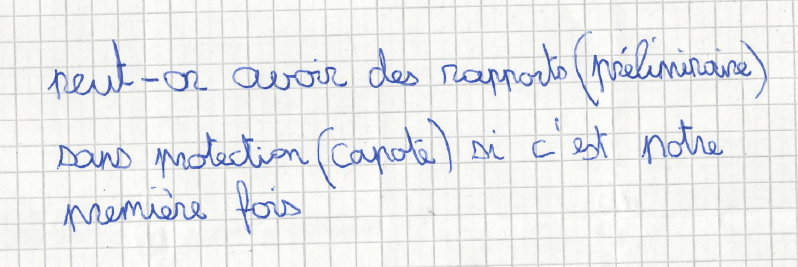 peut-on avoir des rapports (préliminaire)
sans protection (capote) si c'est notre
première fois